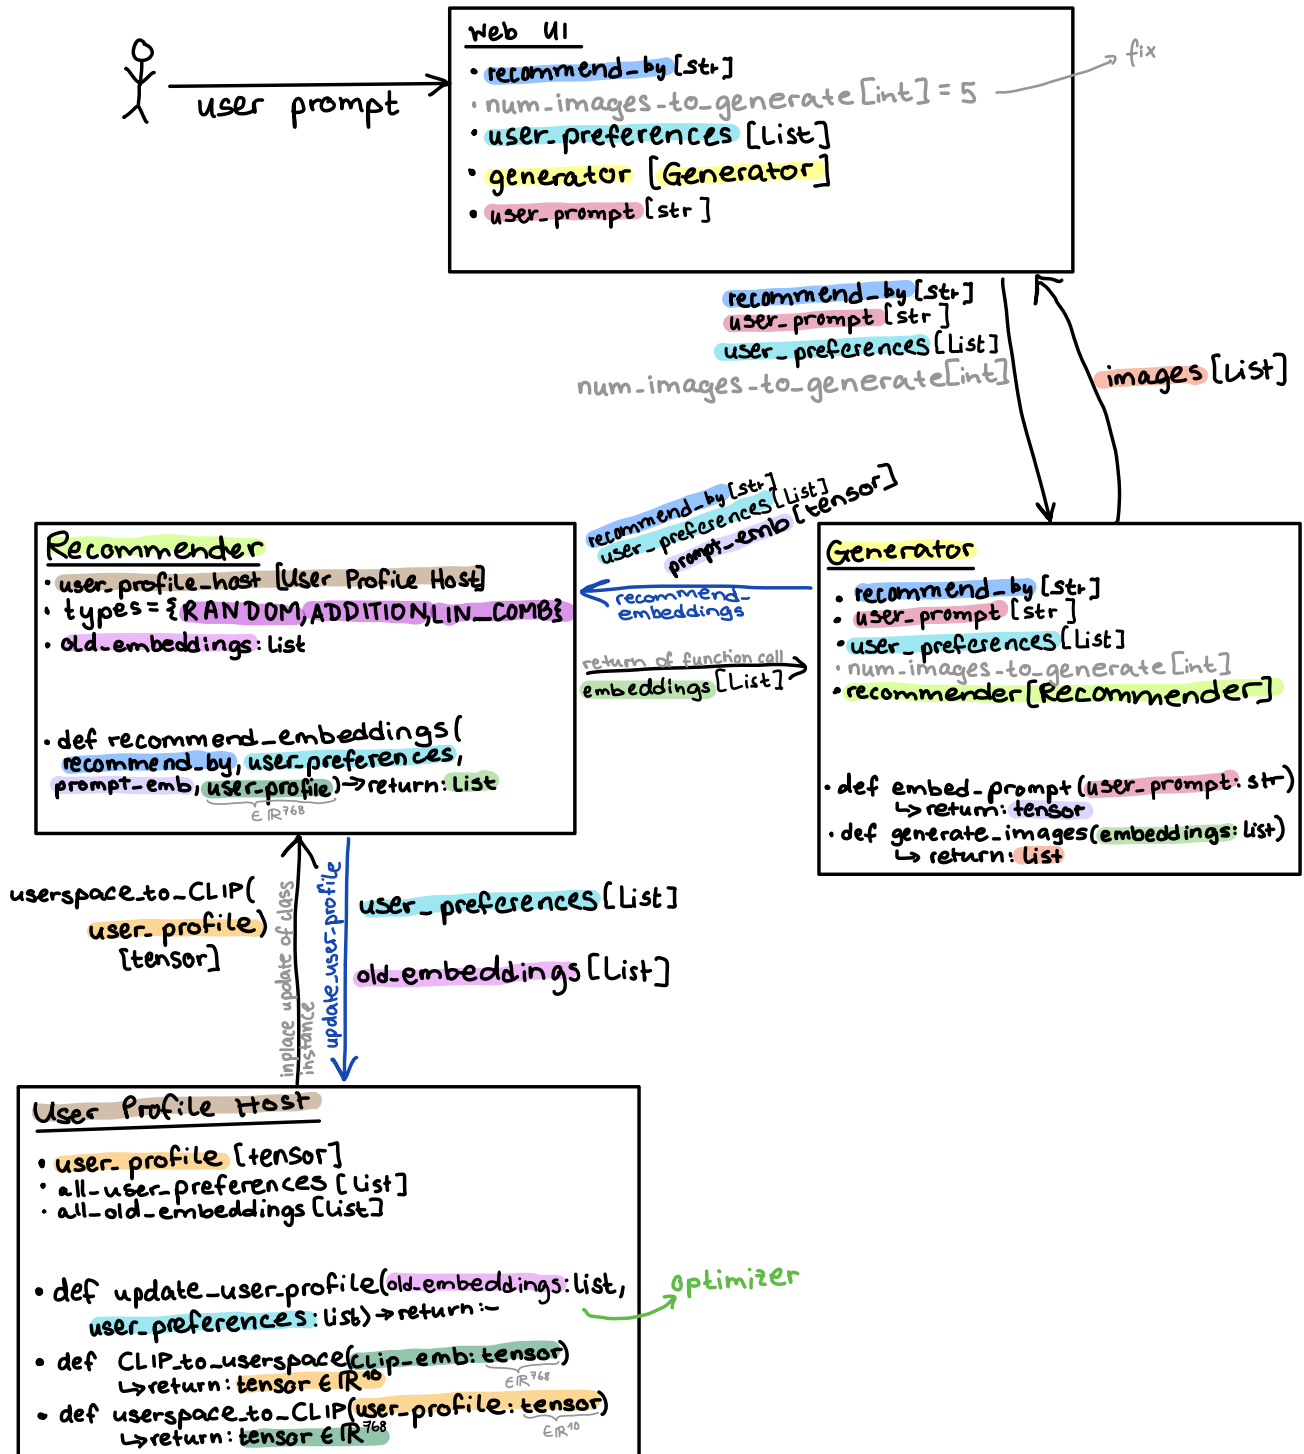 Web UI
• recommend_by [str]
• num_images_to_generate [int] = 5
fix
• user_preferences [List]
• generator [Generator]
• user_prompt [str]
user prompt
recommend_by [str]
user_prompt [str]
user_preferences [List]
num_images_to_generate [int]
images [List]
recommend_by [str]
user_preferences [List]
prompt_emb [tensor]
recommend_
embeddings
return of function call
embeddings [List]
Recommender
• user_profile_host [User Profile Host]
• types = {RANDOM, ADDITION, LIN_COMB}
• old_embeddings: List
• def recommend_embeddings(
recommend_by, user_preferences,
prompt_emb, user_profile) → return: List
∈ ℝ⁷⁶⁸
Generator
• recommend_by [str]
• user_prompt [str]
• user_preferences [List]
• num_images_to_generate [int]
• recommender [Recommender]
• def embed_prompt (user_prompt: str)
↳ return: tensor
• def generate_images (embeddings: list)
↳ return: list
userspace_to_CLIP(
user_profile)
[tensor]
inplace update of class
instance
update_user_profile
user_preferences [List]
old_embeddings [List]
User Profile Host
• user_profile [tensor]
• all_user_preferences [List]
• all_old_embeddings [List]
• def update_user_profile(old_embeddings: list,
user_preferences: list) → return: -
optimizer
• def CLIP_to_userspace(clip_emb: tensor)
∈ ℝ⁷⁶⁸
↳ return: tensor ∈ ℝ¹⁰
• def userspace_to_CLIP(user_profile: tensor)
∈ ℝ¹⁰
↳ return: tensor ∈ ℝ⁷⁶⁸